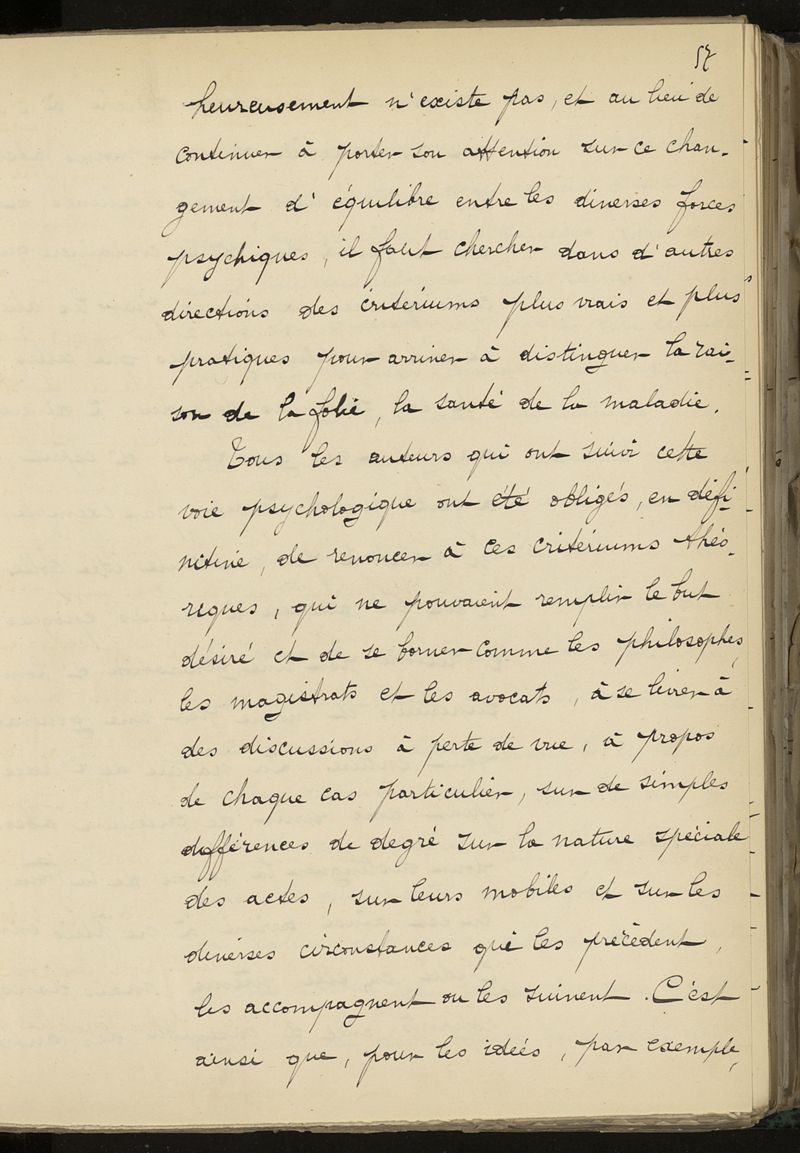 57
heureusement n'existe pas, et au lieu de
continuer à porter son attention sur ce chan-
gement d'équilibre entre les diverses forces
psychiques, il faut chercher dans d'autres
directions des critériums plus vrais et plus
pratiques pour arriver à distinguer la rai-
son de la folie, la santé de la maladie.
Tous les auteurs qui ont suivi cette
voie psychologique ont été obligés, en défi-
nitive, de renoncer à ces critériums théo-
riques, qui ne pouvaient remplir le but
désiré et de se borner comme les philosophes,
les magistrats et les avocats, à se livrer à
des discussions à perte de vue, à propos
de chaque cas particulier, sur de simples
différences de degré sur la nature spéciale
des actes, sur leurs mobiles et sur les
diverses circonstances qui les précèdent,
les accompagnent ou les suivent. C'est
ainsi que, pour les idées, par exemple,